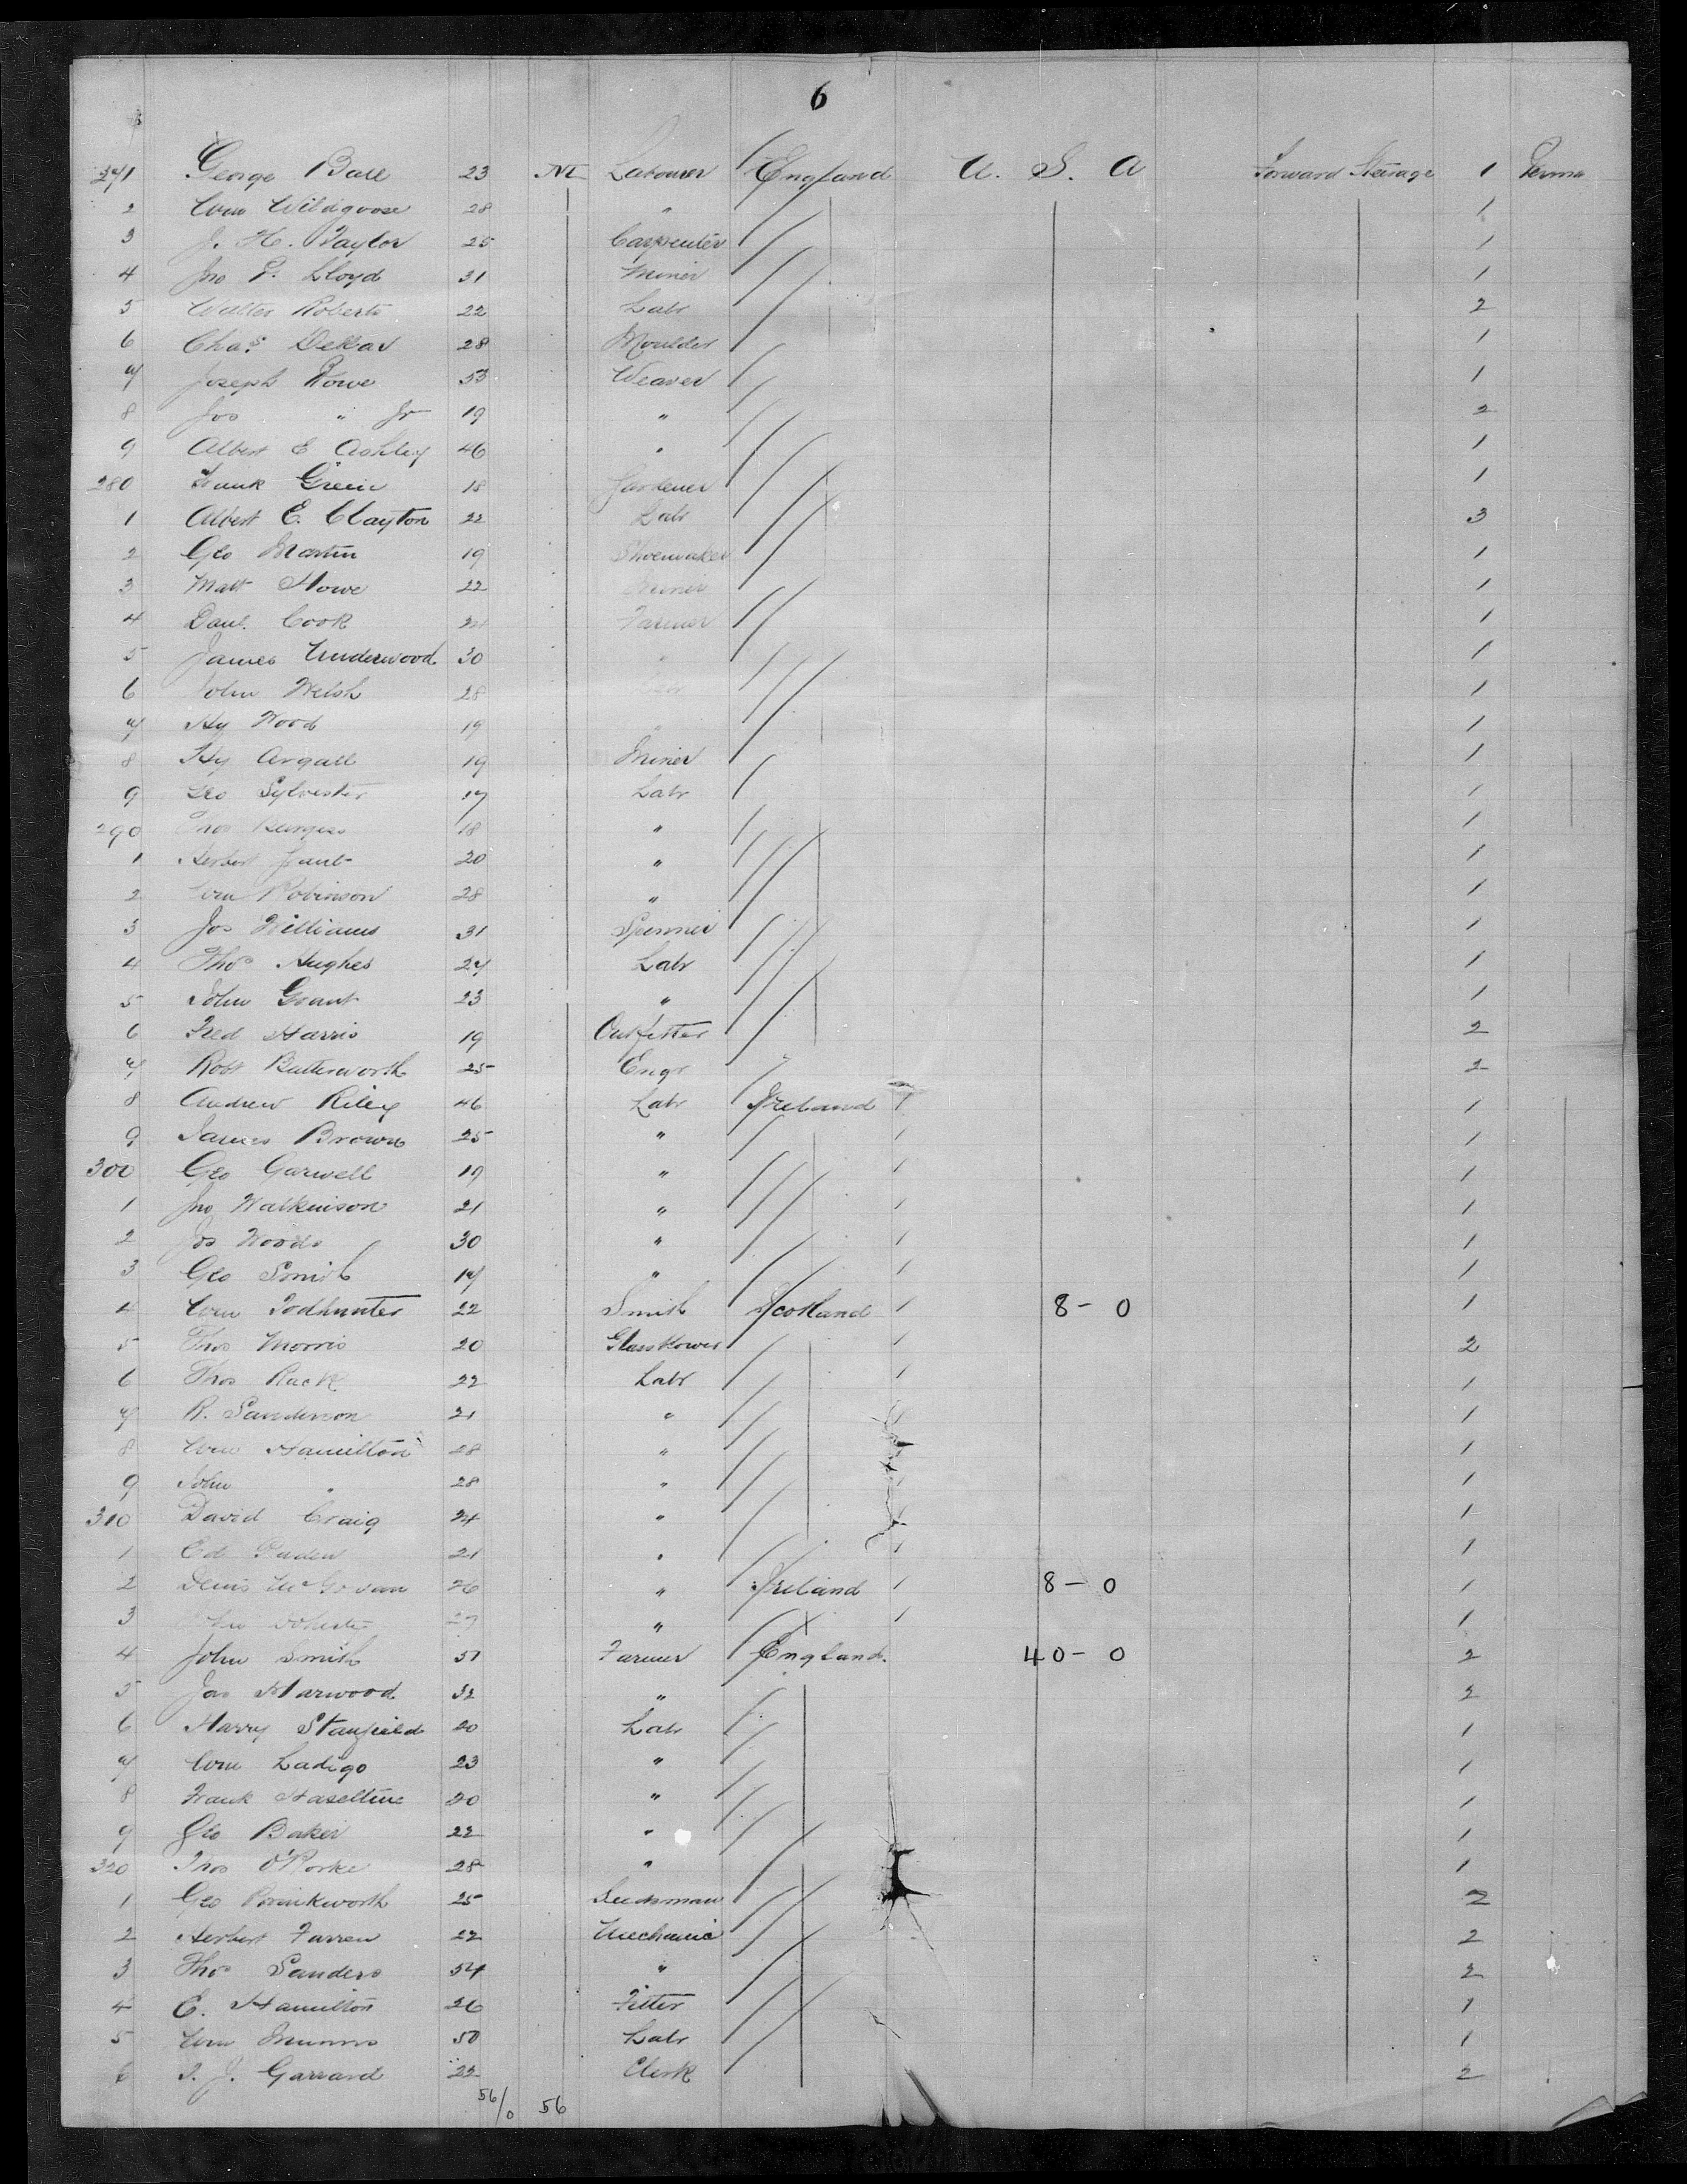 6
271 George Ball 23 M Labourer England U. S. A Forward Steerage 1 Perma
2 Wm Wildgoose 28 " 1
3 J. H. Taylor 25 Carpenter 1
4 Jno P. Lloyd 31 Miner 1
5 Walter Roberts 22 Labr 2
6 Chas. Dekar 28 Moulder 1
7 Joseph Rowe 53 Weaver 1
8 Jos " Jr 19 " 2
9 Albert E Ashley 46 " 1
280 Frank Green 18 Gardener 1
1 Albert E. Clayton 22 Labr 3
2 Geo Martin 19 Shoemaker 1
3 Matt Howe 22 Miner 1
4 Danl. Cook Farmer 1
5 James Underwood 30 " 1
6 John Welsh 28 1
7 Hy Wood 19 " 1
8 Hy Argall 19 Miner 1
9 Geo Sylvester 17 Labr 1
290 Thos Burgess 18 " 1
1 Herbert 20 " 1
2 Wm Robinson 28 " 1
3 Jos Williams 31 Spinner 1
4 Thos Hughes 27 Labr 1
5 John Grant 23 " 1
6 Fred Harris 19 Outfitter 2
7 Robt Butterworth 25 Engr 2
8 Andrew Riley 46 Labr Ireland 1 1
9 James Brown 25 " 1 1
300 Geo Garwell 19 " 1 1
1 Jno Walkinson 21 " 1 1
2 Jos Woods 30 " 1 1
3 Geo Smith 17 " 1 1
4 Wm Todhunter 22 Smith Scotland 1 8 - 0 1
5 Thos Morris 20 1 2
6 Thos Rack 22 Labr 1 1
7 R. Sanderson 21 " 1 1
8 Wm Hamilton 28 " 1
9 John " 28 " 1
310 David Craig 24 " 1
1 Ed 21 " 1 1
2 Denis McGovan 26 " Ireland 1 8 - 0 1
3 John 27 " 1 1
4 John Smith 51 Farmer England. 40 - 0 2
5 Jas Harwood 32 " 2
6 Harry Stanfield 20 Labr 1
7 Wm Ladigo 23 " 1
8 Frank Haseltine 20 " 1
9 Geo Baker 22 " 1
320 Thos O'Rorke 28 " 1
1 Geo Brinkworth 25 Seedsman 2
2 Herbert Farren 22 Mechanic 2
3 Thos Sanders 54 " 2
4 E. Hamilton 26 Fitter 1
5 Wm Munro 50 Labr 1
6 T. J. Garrard 22 Clerk 2
56/0 56